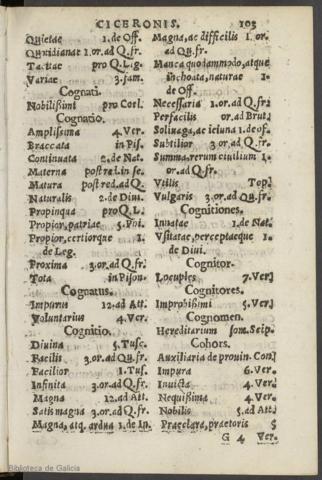 CICERONIS. 103
Quietae 1. de Off.
Quotidianae 1. or. ad Q. fr.
Tacitae pro Q. Lig.
Variae 3. fam.
Cognati.
Nobilißimi pro Coel.
Cognatio.
Amplissima 4. Ver.
Braccata in Pis.
Continuata 2. de Nat.
Materna post red. in se.
Matura post red. ad Q.
Naturalis 2. de Diui.
Propinqua pro Q. L.
Propior, patriae 5. Poi.
Propior, certiorque 1.
de Leg.
Proxima 3. or. ad Q. fr.
Tota in Pison.
Cognatus.
Impurus 12. ad Att.
Voluntarius 4. Ver.
Cognitio.
Diuina 5. Tusc.
Facilis 3. or. ad Qu. fr.
Facilior 1. Tus.
Infinita 3. or. ad Q. fr.
Magna 12. ad Att.
Satis magna 3. or. ad Q. fr.
Magna, atq. ardua 1. de In.
Magna, ac difficilis 1. or.
ad Qu. fr.
Manca quodammodo, atque
inchoata, naturae 1.
de Off.
Necessaria 1. or. ad Q. fr.
Perfacilis or. ad Brut.
Soliuaga, ac ieiuna 1. de of.
Subtilior 3. or. ad Q. fr.
Summa, rerum ciuilium 1.
or. ad Q. fr.
Vtilis Top.
Vulgaris 3. or. ad Qu. fr.
Cognitiones.
Innatae 1. de Nat.
Vsitatae, perceptaeque 1.
de Diui.
Cognitor.
Locuples 7. Ver.
Cognitores.
Improbißimi 5. Ver.
Cognomen.
Hereditarium som. Scip.
Cohors.
Auxiliaria de prouin. Con.
Impura 6. Ver.
Inuicta 4. Ver.
Nequißima 4. Ver.
Nobilis 5. ad Att.
Praeclara, praetoris 5
G 4 Ver.
Biblioteca de Galicia